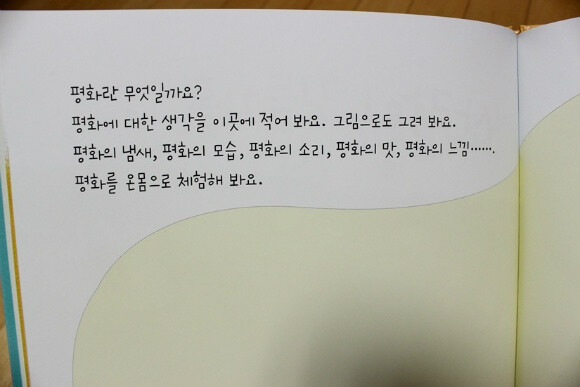 평화란 무엇일까요?
평화에 대한 생각을 이곳에 적어 봐요. 그림으로도 그려 봐요.
평화의 냄새, 평화의 모습, 평화의 소리, 평화의 맛, 평화의 느낌……
평화를 온몸으로 체험해 봐요.